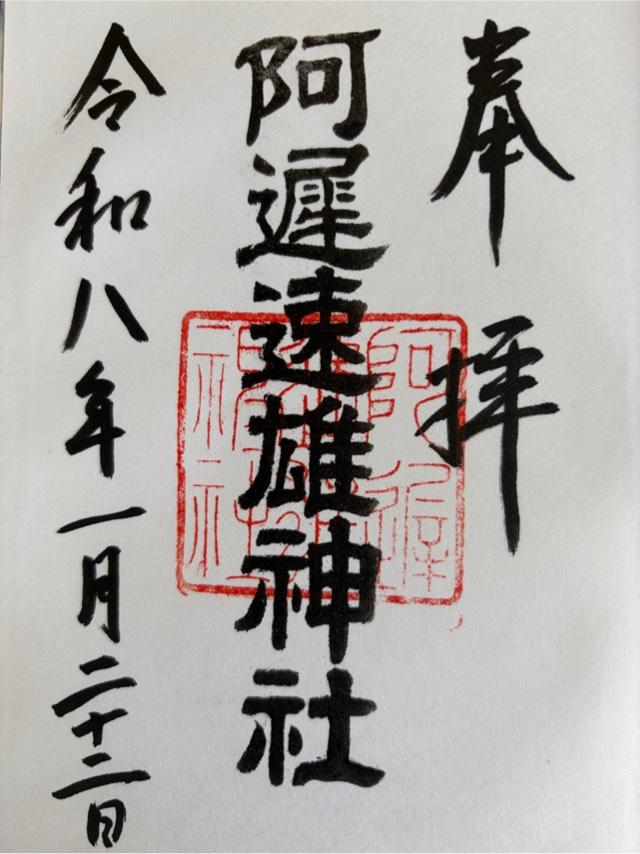 奉拝
阿遅速雄神社
令和八年一月二十二日